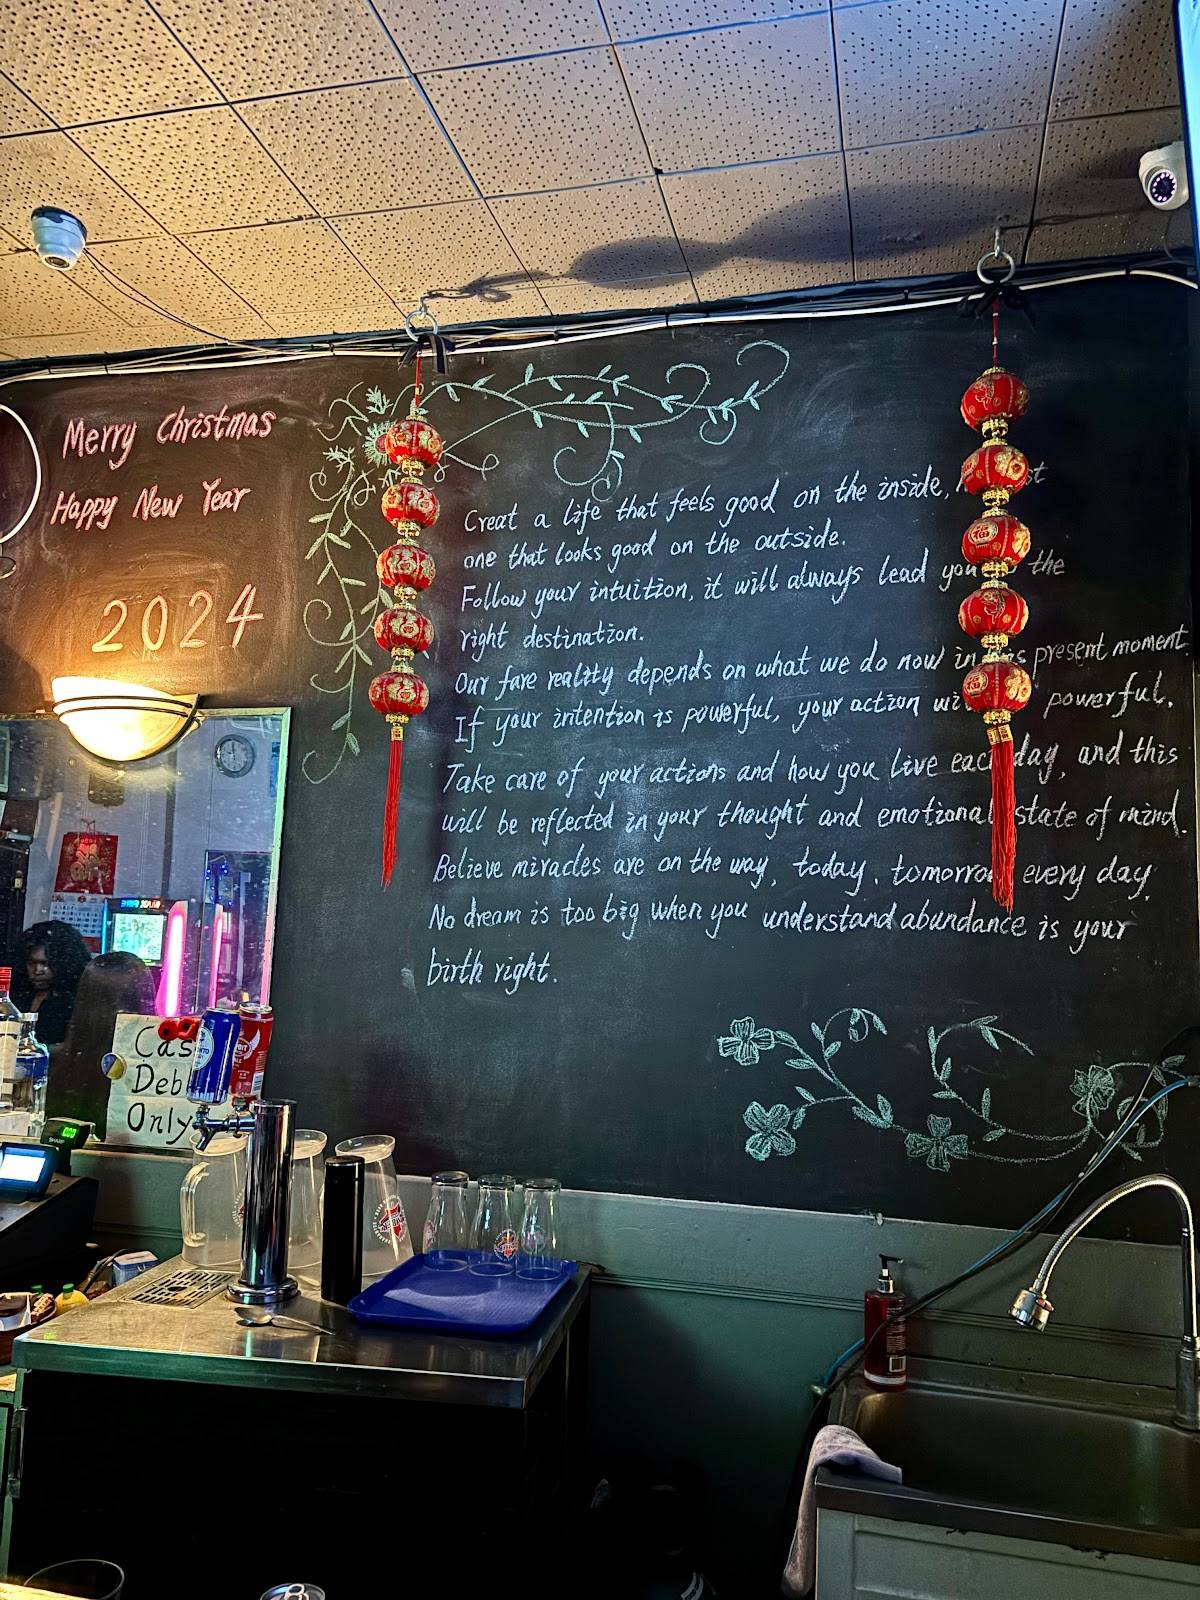 Merry Christmas
Happy New Year
2024
Creat a life that feels good on the inside,
one that looks good on the outside.
Follow your intuition, it will always lead you the
right destination.
Our fare reality depends on what we do now in present moment
If your intention is powerful, your action powerful.
Take care of your actions and how you live each day, and this
will be reflected in your thought and emotional state of mind.
Believe miracles are on the way, today. tomorrow every day,
No dream is too big when you understand abundance is your
birth right.
Cas
Deb
Only
福
福
福